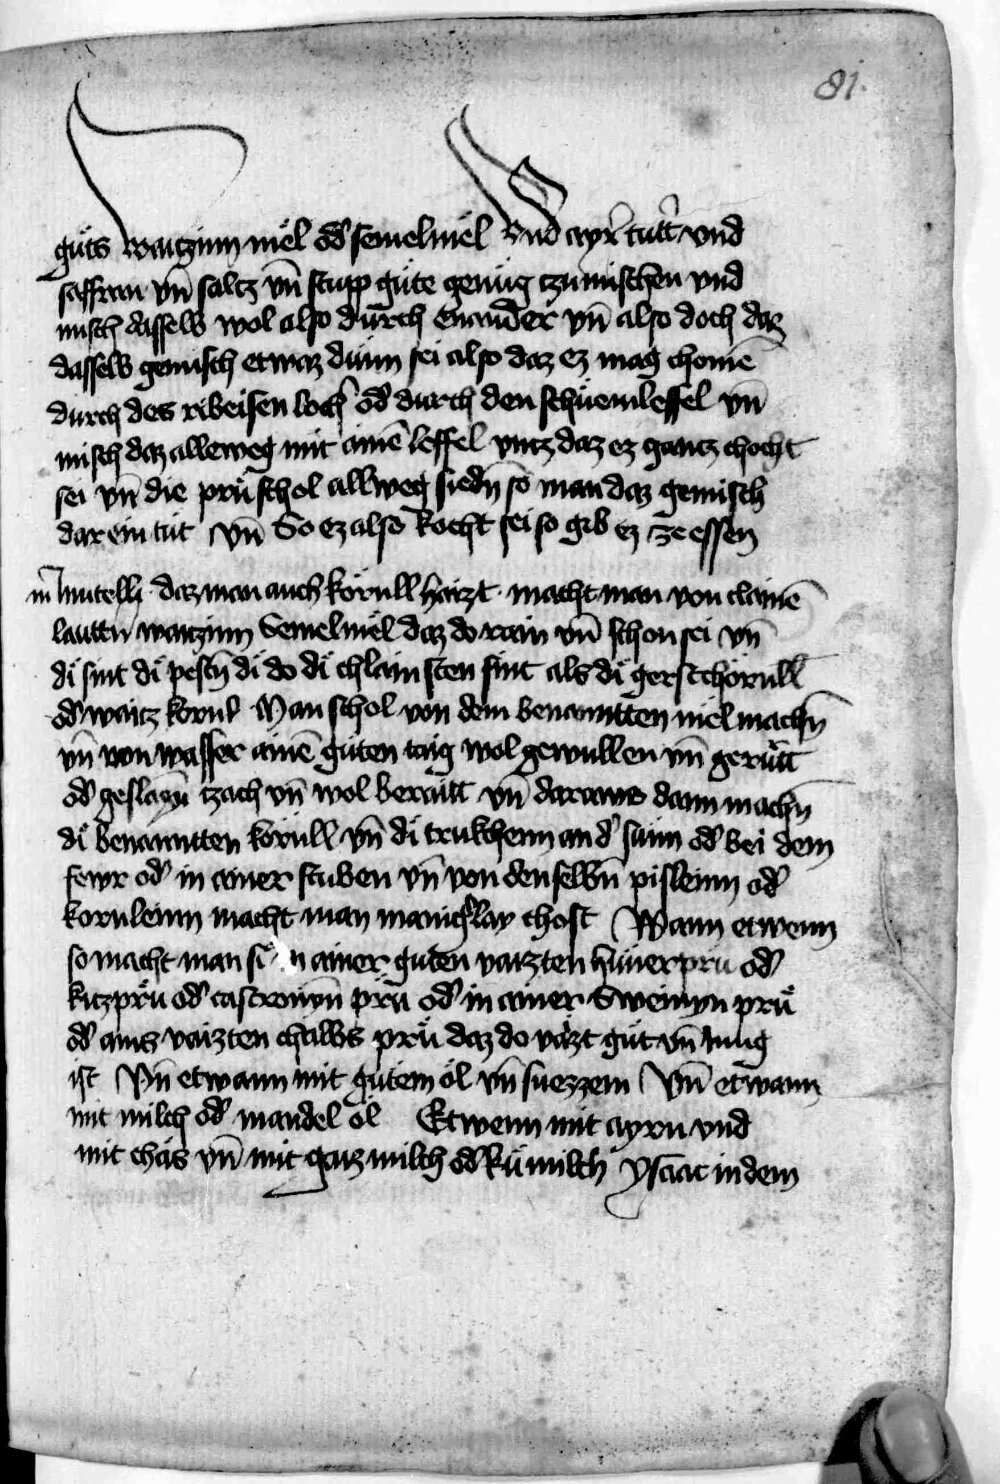 81.
guͤts waitzinn mel od̕ semelmel Vnd ayr̕ tutt̕ vnd
saffran vn̄ saltz vn̄ stupp guͤte genuͤg tzu mischen vnd
misch dasselb wol also durch enander vn̄ also doch daz
dasselb gemisch etwaz dünn sei also daz ez mag chomē
durch des ribeisen loch̕ od̕ durch den schüemleffel vn̄
misch daz alleweg mit ainē leffel vntz daz ez gantz chocht
sei vn̄ die prüͤ schol allweg siedn̄ so man daz gemisch
darein tüt vn̄ So ez also kocht sei so gib ez ze essen
daz man auch körnll haizt macht man von clainē
lauttn̄ waitzinn Semelmel daz do rain vn̄ schon sei vn̄
di sint di pestn̄ di do di chlainsten sint als di gerstchörnll
od̕ waitz kornl Man schol von dem benanntten mel machn̄
vn̄ von wasser ainē guten taig wol gewullen vn̄ gerütt
od̕ geslagn̄ tzach vn̄ wol beraitt vn̄ daraws dann machn̄
di benanntten körnll vn̄ di trukchenn an d̕ sunn od̕ bei dem
fewr od̕ in ainer stuben vn̄ von denselbn̄ pislenn od̕
kornlenn macht man manig̕lay chost Wann etwenn
so macht man si in ainer guten vaizten hünerprü od̕
kitzprü od̕ castrounn̄ prü od̕ in ainer Sweinyn prü
od̕ ains vaizten chalbs prü daz do vaizt gut vn̄ iung
ist Vn̄ etwann mit gutem öl vn̄ suezzem Vn̄ etwann
mit milch od̕ mandel öl Etwenn mit ayrn vnd
mit chäs vn̄ mit gaizmilch od̕ kümilch Ysaac in dem